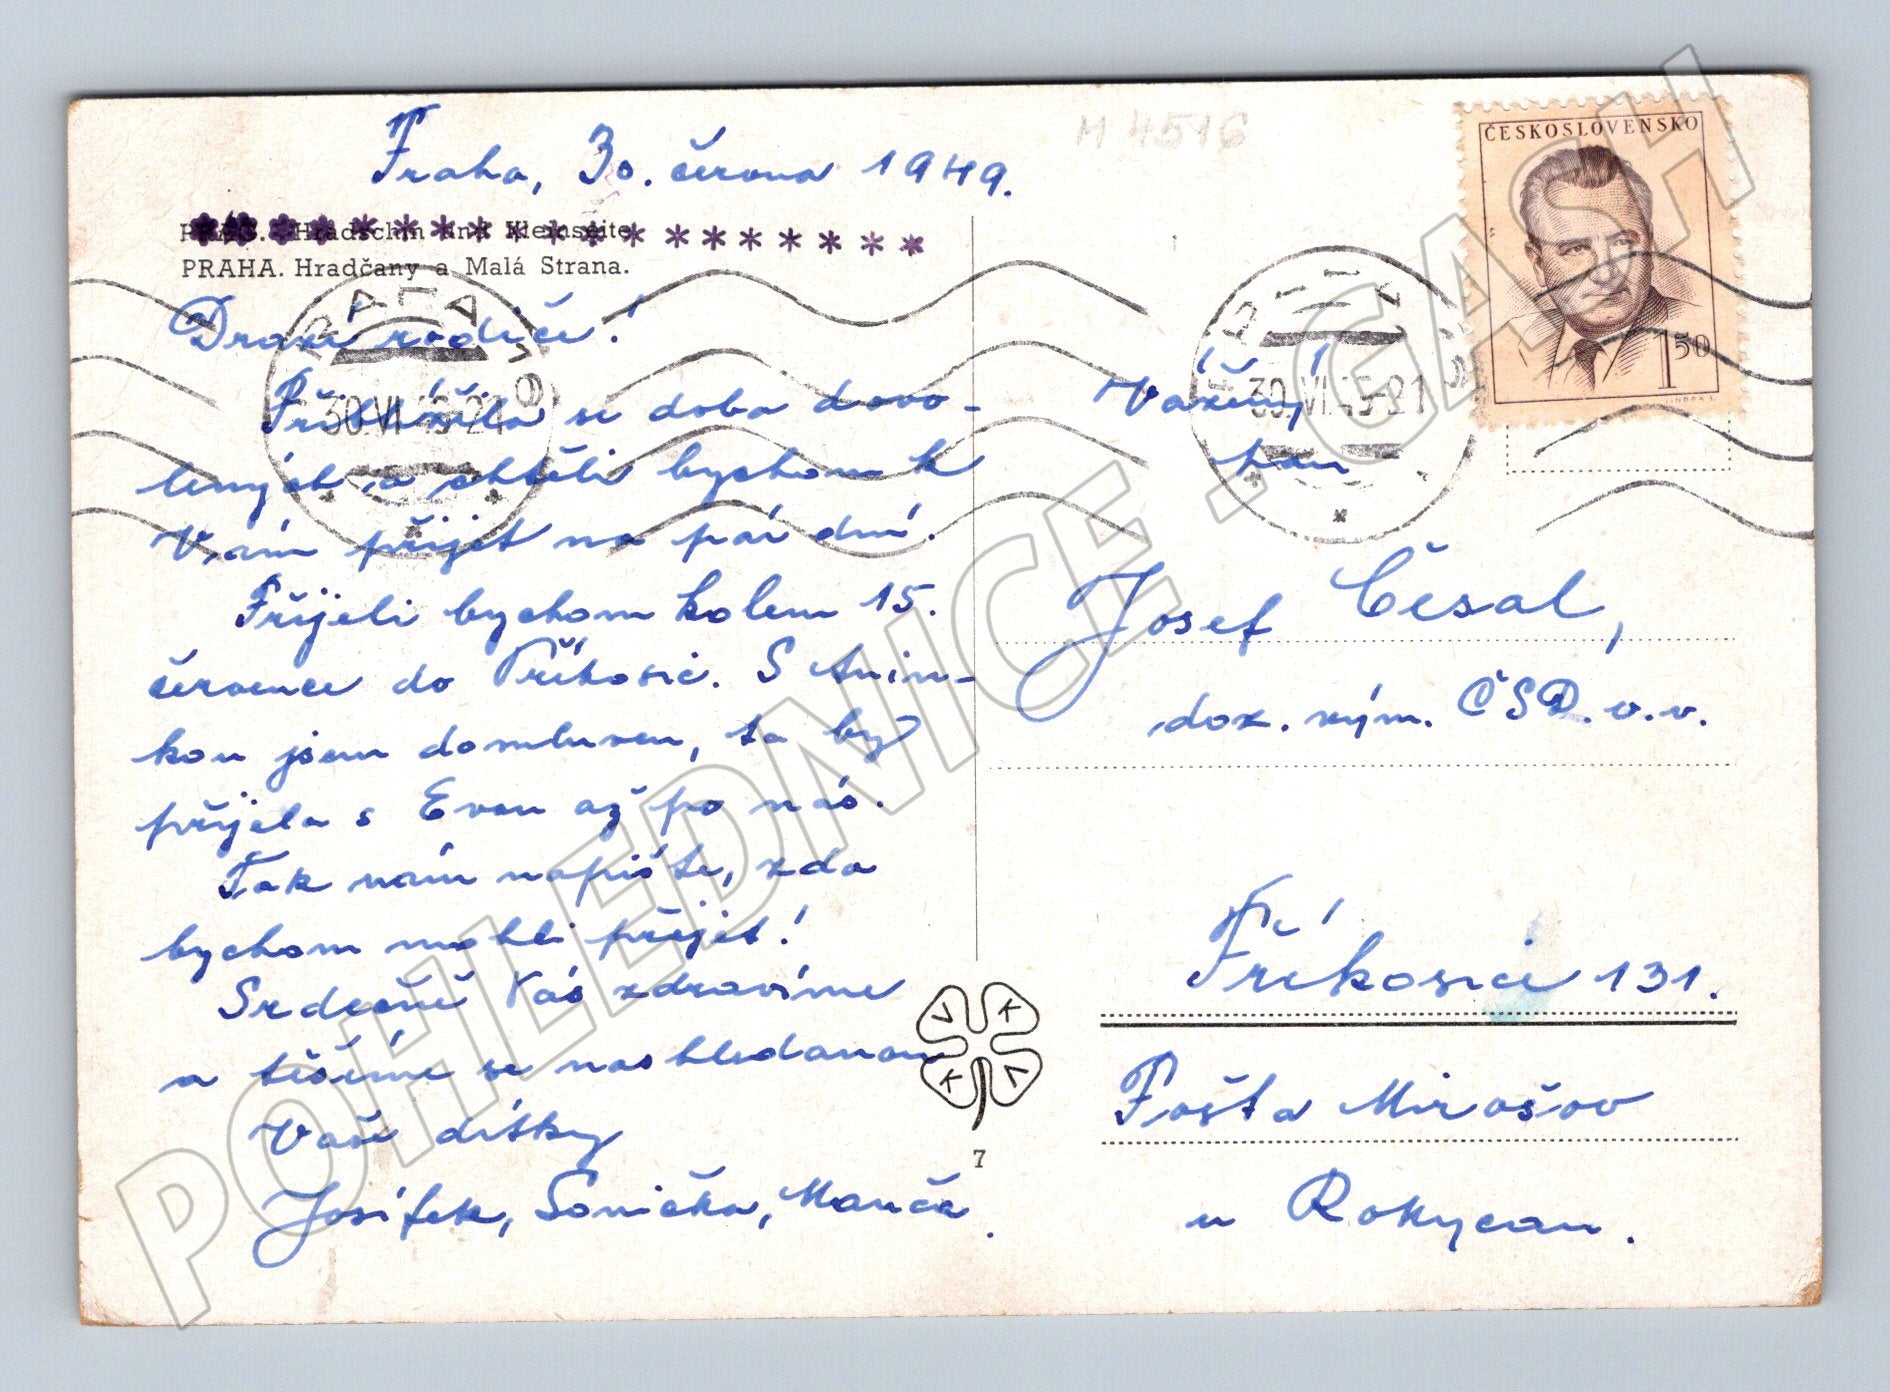 Praha, 30. června 1949.
M 4516
PRAG. Hradschin und Kleinseite
PRAHA. Hradčany a Malá Strana.
Drazí rodiče!
Přiblížila se doba dovo-
lených a chtěli bychom k
Vám přijet na pár dní.
Přijeli bychom kolem 15.
července do Příkosic. S Anin-
kou jsem domluven, ta by
přijela s Evou až po nás.
Tak nám napište, zda
bychom mohli přijet!
Srdečně Vás zdravíme
a těšíme se nashledanou
Vaše dítky
Josífek, Sonička, Manča.
ČESKOSLOVENSKO
1 50
30.VI.49-21
30.VI.49-21
Vážený
pan
Josef Česal,
doz. vým. ČSD. v.v.
Příkosice 131.
Pošta Mirošov
u Rokycan.
V K
K V
7
POHLEDNICE.GASH